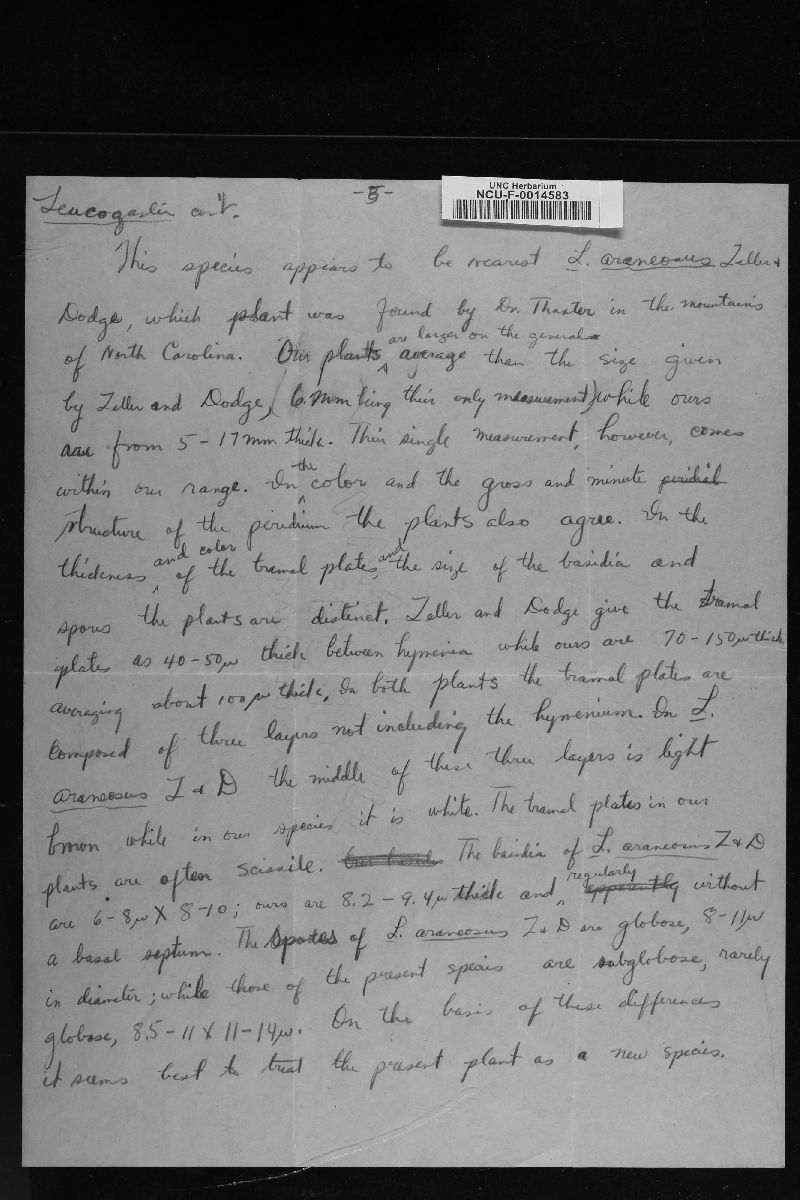 UNC Herbarium
NCU-F-0014583
Leucogaster cont.
-5-
This species appears to be nearest L. araneosus Zeller &
Dodge, which plant was found by Dr. Thaxter in the mountains
are larger on the general
of North Carolina. Our plants average than the size given
by Zeller and Dodge, (6 mm being their only measurement) while ours
are from 5-17 mm thick. Their single measurement, however, comes
the
within our range. In color and the gross and minute peridial
structure of the peridium the plants also agree. In the
and color and
thickness of the tramal plates, the size of the basidia and
spores the plants are distinct. Zeller and Dodge give the tramal
plates as 40-50µ thick between hymenia while ours are 70-150µ thick
averaging about 100µ thick. In both plants the tramal plates are
composed of three layers not including the hymenium. In L.
araneosus Z & D the middle of these three layers is light
brown while in our species it is white. The tramal plates in our
plants are often scissile. The basidia of L. araneosus Z & D
regularly
are 6-8µ X 8-10; ours are 8.2-9.4µ thick and apparently without
a basal septum. The spores of L. araneosus Z & D are globose, 8-11µ
in diameter; while those of the present species are subglobose, rarely
globose, 8.5-11 X 11-14µ. On the basis of these differences
it seems best to treat the present plant as a new species.